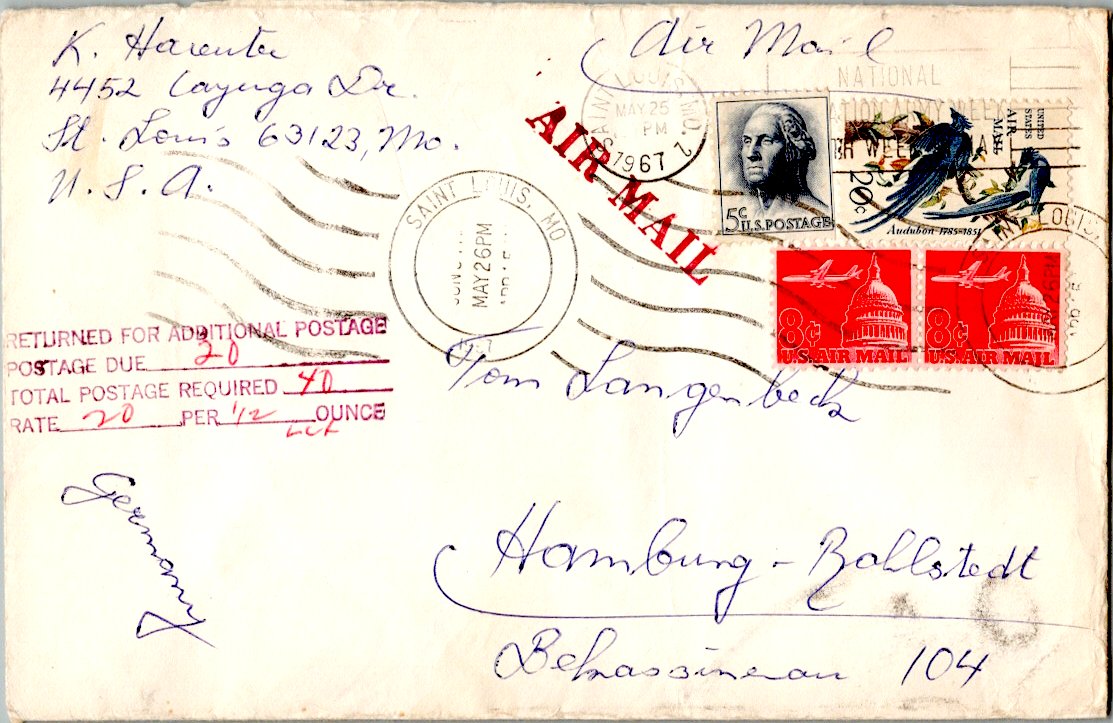 K. Harenter
4452 Cayuga Dr.
St. Louis 63123, Mo.
U. S. A.
Air Mail
AIR MAIL
SAINT LOUIS, MO. 2
MAY 25
PM
1967
NATIONAL
WEEK
5¢
U.S. POSTAGE
UNITED STATES
AIR MAIL
20c
Audubon 1785-1851
SAINT LOUIS, MO
MAY 26 PM
8¢
U.S. AIR MAIL
8¢
U.S. AIR MAIL
SAINT LOUIS,
26 PM
RETURNED FOR ADDITIONAL POSTAGE
POSTAGE DUE 20
TOTAL POSTAGE REQUIRED 40
RATE 20 PER 1/2 OUNCE
Tom Langenbeck
Hamburg - Rahlstedt
Bekassinenau 104
Germany